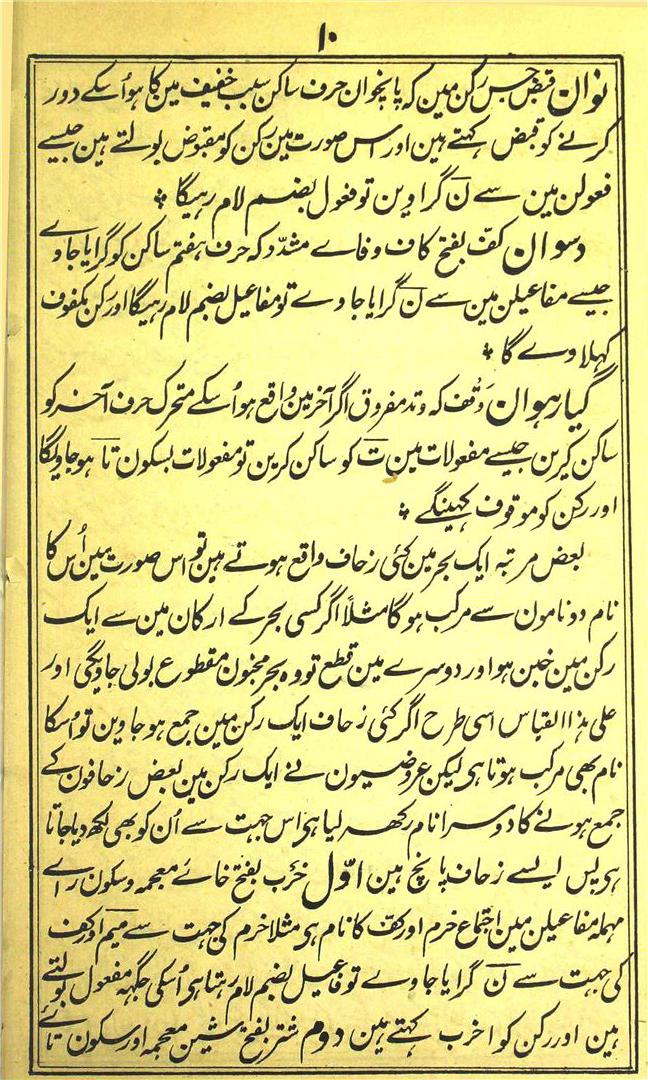 ۱۰
نوان قبض جس رکن مین کہ پانچوان حرف ساکن سبب خفیف مین کا ہو اُسکے دور
کرنے کو قبض کہتے ہین اور اس صورت مین رکن کو مقبوض بولتے ہین جیسے
فعولن مین سے نَ گراوین تو فعول بضم لام رہیگا ؞
دسوان کفّ بفتح کاف و فاے مشدّد کہ حرف ہفتم ساکن کو گرایا جاوے
جیسے مفاعیلن مین سے نَ گرایا جاوے تو مفاعیل بضم لام رہیگا اور رکن مکفوف
کہلاوے گا ؞
گیارہوان وَقْف کہ وتد مفروق اگر آخر مین واقع ہو اُسکے متحرک حرف آخر کو
ساکن کرین جیسے مفعولات مین تَ کو ساکن کرین تو مفعولات بسکون تا ہو جاویگا
اور رکن کو موقوف کہینگے ؞
بعض مرتبہ ایک بحر مین کئی زحاف واقع ہوتے ہین تو اس صورت مین اُس کا
نام دو نامون سے مرکب ہوگا مثلًا اگر کسی بحر کے ارکان مین سے ایک
رکن مین خبن ہو اور دوسرے مین قطع تو وہ بحر مخبون مقطوع بولی جاویگی اور
علی ہذا القیاس اسی طرح اگر کئی زحاف ایک رکن مین جمع ہو جاوین تو اُسکا
نام بھی مرکب ہوتا ہی لیکن عروضیون نے ایک رکن مین بعض زحافون کے
جمع ہونے کا دوسرا نام رکھہ لیا ہی اس جہت سے اُن کو بھی لکھ دیا جاتا
ہی پس ایسے زحاف پانچ ہین اوّل خرَب بفتح خاے معجمہ و سکون راے
مہملہ مفاعیلن مین اجتماع خرم اور کفّ کا نام ہی مثلا خرم کی جہت سے میم اور کف
کی جہت سے نَ گرایا جاوے تو فاعیل بضم لام رہتا ہی اُسکی جگہہ مفعول بولتے
ہین اور رکن کو اخرب کہتے ہین دوم شتر بفتح شین معجمہ اور سکون تاے